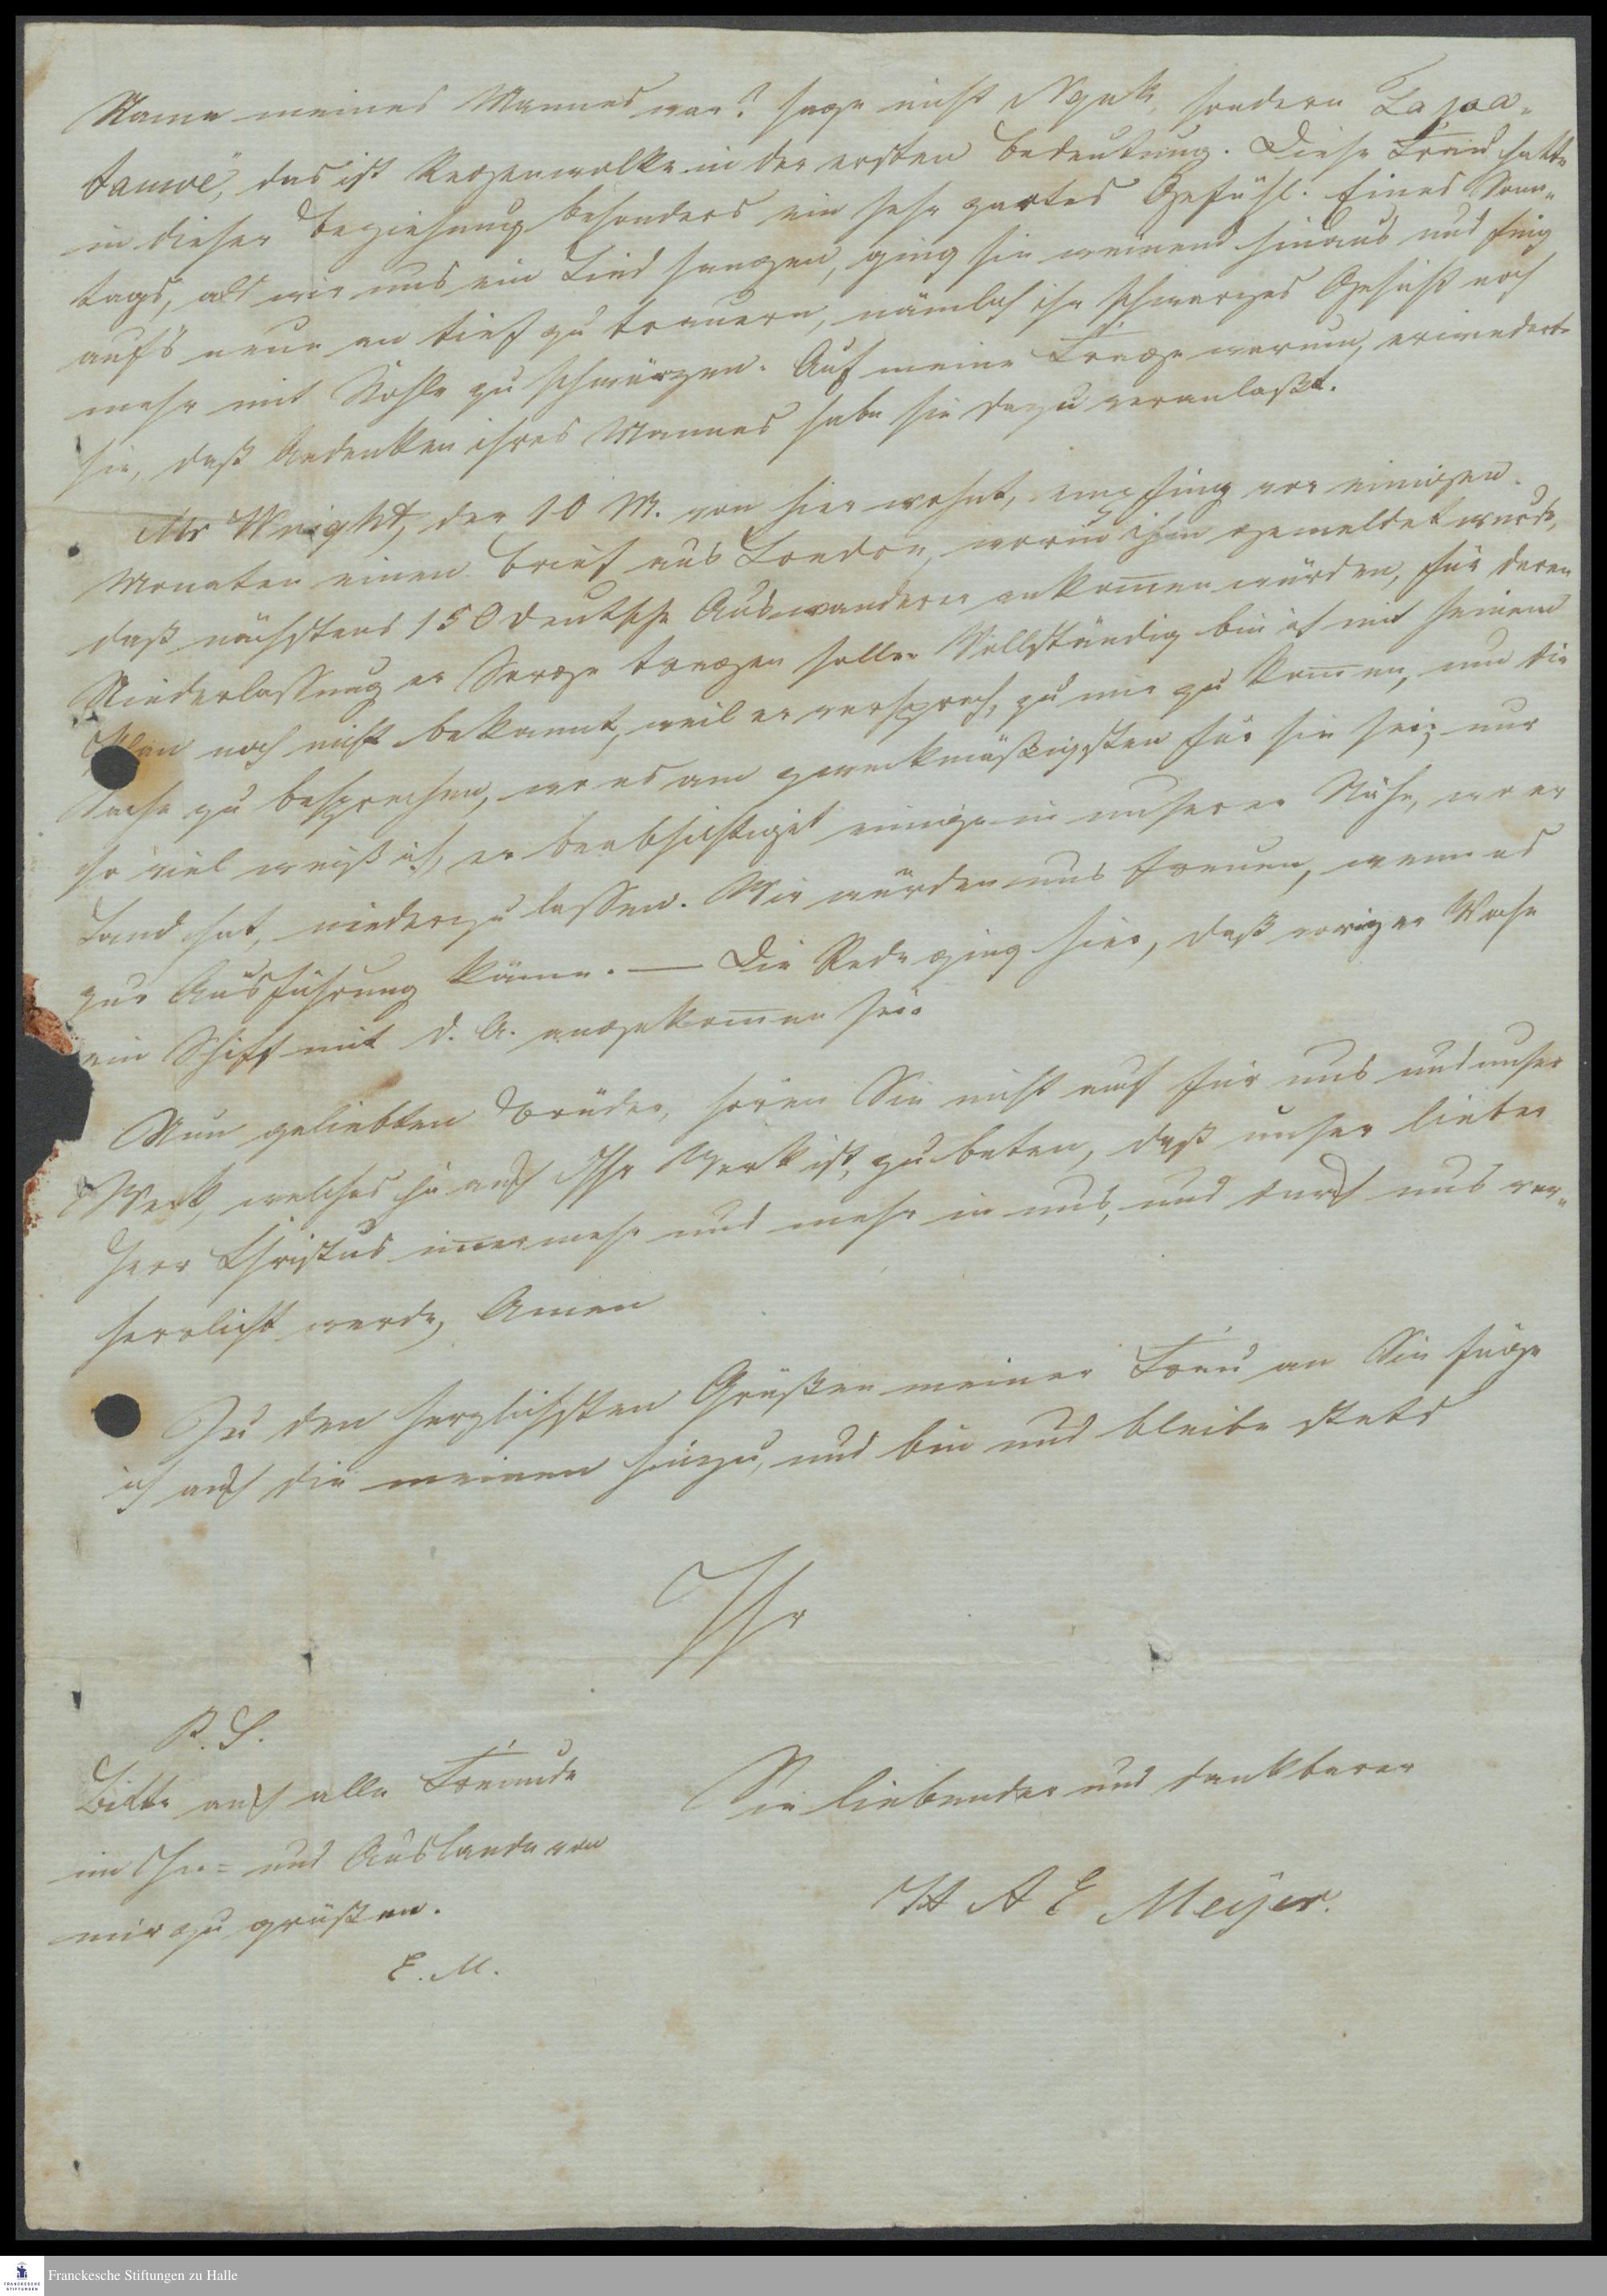 Name meines Mannes war? sage nicht Ngak, sondern Lapa-
tauwe", das ist Regenwolke in der ersten Bedeutung. Diese Frau hatte
in dieser Beziehung besonders ein sehr zartes Gefühl. Eines Sonn-
tags, als wir uns ein Lied sangen, ging sie weinend hinaus und fing
aufs neue an tief zu trauern, nämlich ihr schwarzes Gesicht noch
mehr mit Kohle zu schwärzen. Auf meine Frage warum, erwiederte
sie, daß Andenken ihres Mannes habe sie dazu veranlaßt.
Mr Wright, der 10 M. von hier wohnt, empfing vor einigen
Monaten einen Brief aus London, worin ihm gemeldet wurde,
daß nächstens 150 deutsche Auswanderer ankommen würden, für deren
Niederlassung er Sorge tragen solle. Vollständig bin ich mit seinem
Plan noch nicht bekannt, weil er versprach, zu mir zu kommen, um die
Sache zu besprechen, wo es am zweckmäßigsten für sie sei; nur
so viel weiß ich, er beabsichtiget einige in unserer Nähe, wo er
Land hat, niederzulassen. Wir würden uns freuen, wenn es
zur Ausführung käme. — Die Rede ging hier, daß voriger Woche
ein Schiff mit d. A. angekommen sei.
Nun geliebten Brüder, hören Sie nicht auf für uns und unser
Werk, welches ja auch Ihr Werk ist, zu beten, daß unser lieber
Herr Christus immer mehr und mehr in uns, und durch uns ver-
herrlicht werde, Amen
Zu den herzlichsten Grüßen meiner Frau an Sie füge
ich auch die meinen hinzu, und bin und bleibe stets
Ihr
Sie liebender und dankbarer
H A E Meyer.
P. S.
Bitte auch alle Freunde
im In- und Auslande von
mir zu grüßen.
E. M.
Franckesche Stiftungen zu Halle